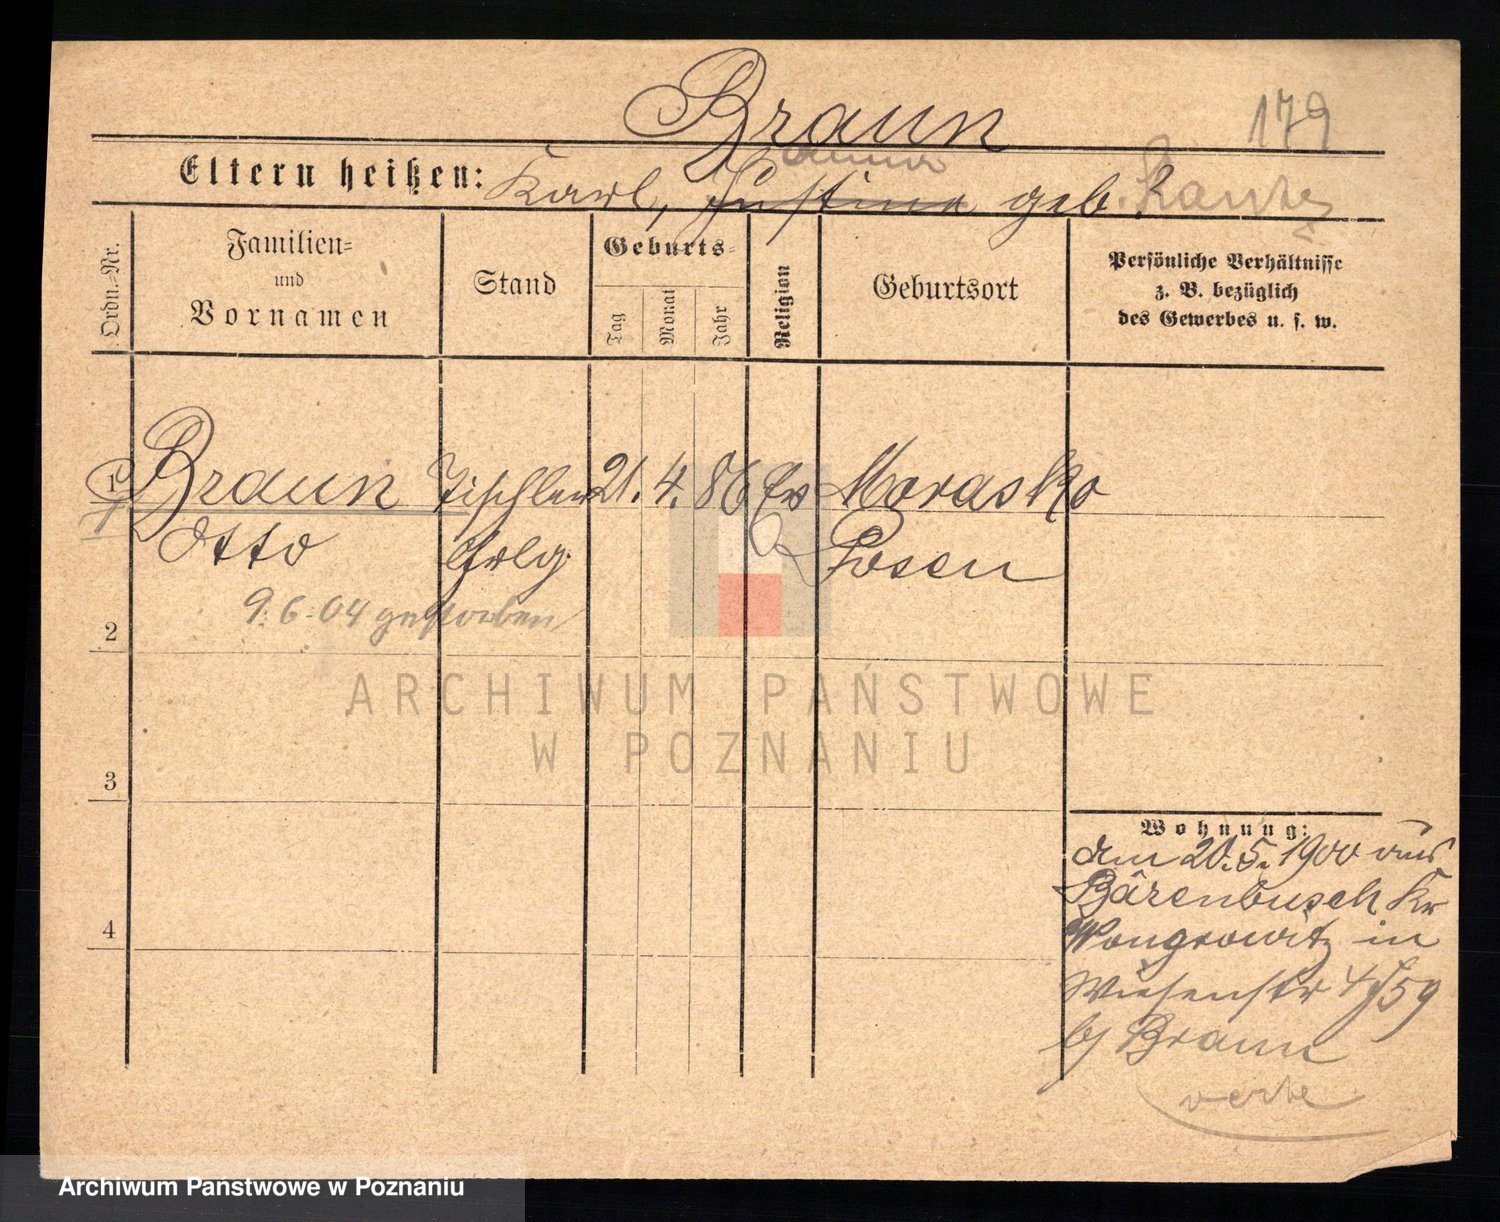 Braun
179
Eltern heißen: Karl, Justina geb.
Anna
Ordn.-Nr.
Familien=
und
Vornamen
Stand
Geburts=
Tag
Monat
Jahr
Religion
Geburtsort
Persönliche Verhältnisse
z. B. bezüglich
des Gewerbes u. s. w.
1 Braun Tischler 21. 4. 86 Ev Morasko
Otto Posen
9. 6. 04 gestorben
2
3
4
Wohnung:
5. 1900 aus
Bärenbusch Kr
Wongrowitz in
Wiesenstr
Braun
ARCHIWUM PAŃSTWOWE
W POZNANIU
Archiwum Państwowe w Poznaniu